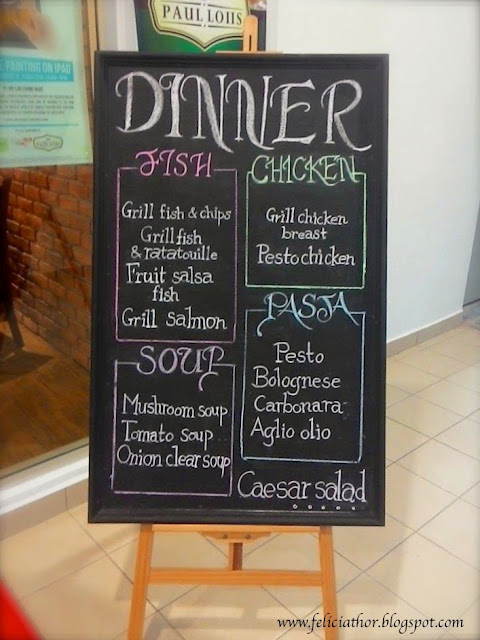 PAUL LOIIS
PAINTING ON IPAD
PAUL LOIIS
DINNER
FISH
Grill fish & chips
Grill fish
& ratatouille
Fruit salsa
fish
Grill salmon
SOUP
Mushroom soup
Tomato soup
Onion clear soup
CHICKEN
Grill chicken
breast
Pesto chicken
PASTA
Pesto
Bolognese
Carbonara
Aglio olio
Caesar salad
www.feliciathor.blogspot.com